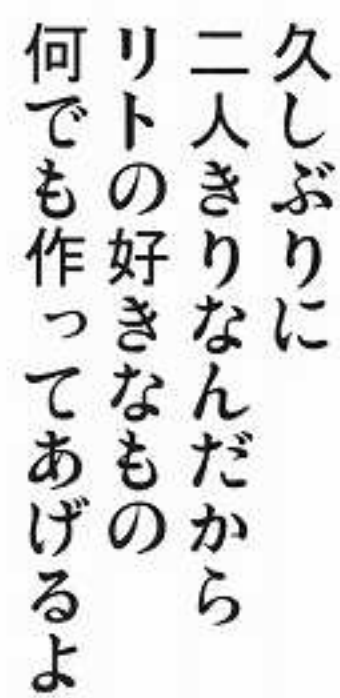 久しぶりに
二人きりなんだから
リトの好きなもの
何でも作ってあげるよ